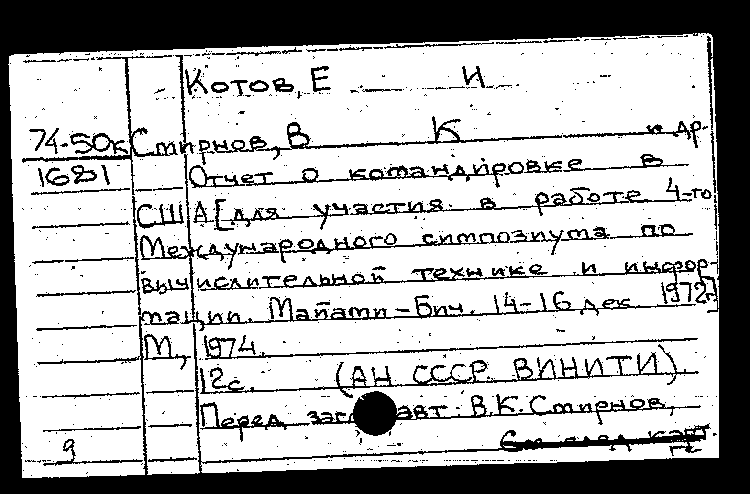 Котов, Е И
74-50к Смирнов, В К и др.
1621 Отчет о командировке в
США [для участия в работе 4-го
Международного симпозиума по
вычислительной технике и инфор-
мации. Майами-Бич. 14-16 дек. 1972г.]
М., 1974.
12с. (АН СССР. ВИНИТИ).
Перед заг. авт. В.К. Смирнов,
9